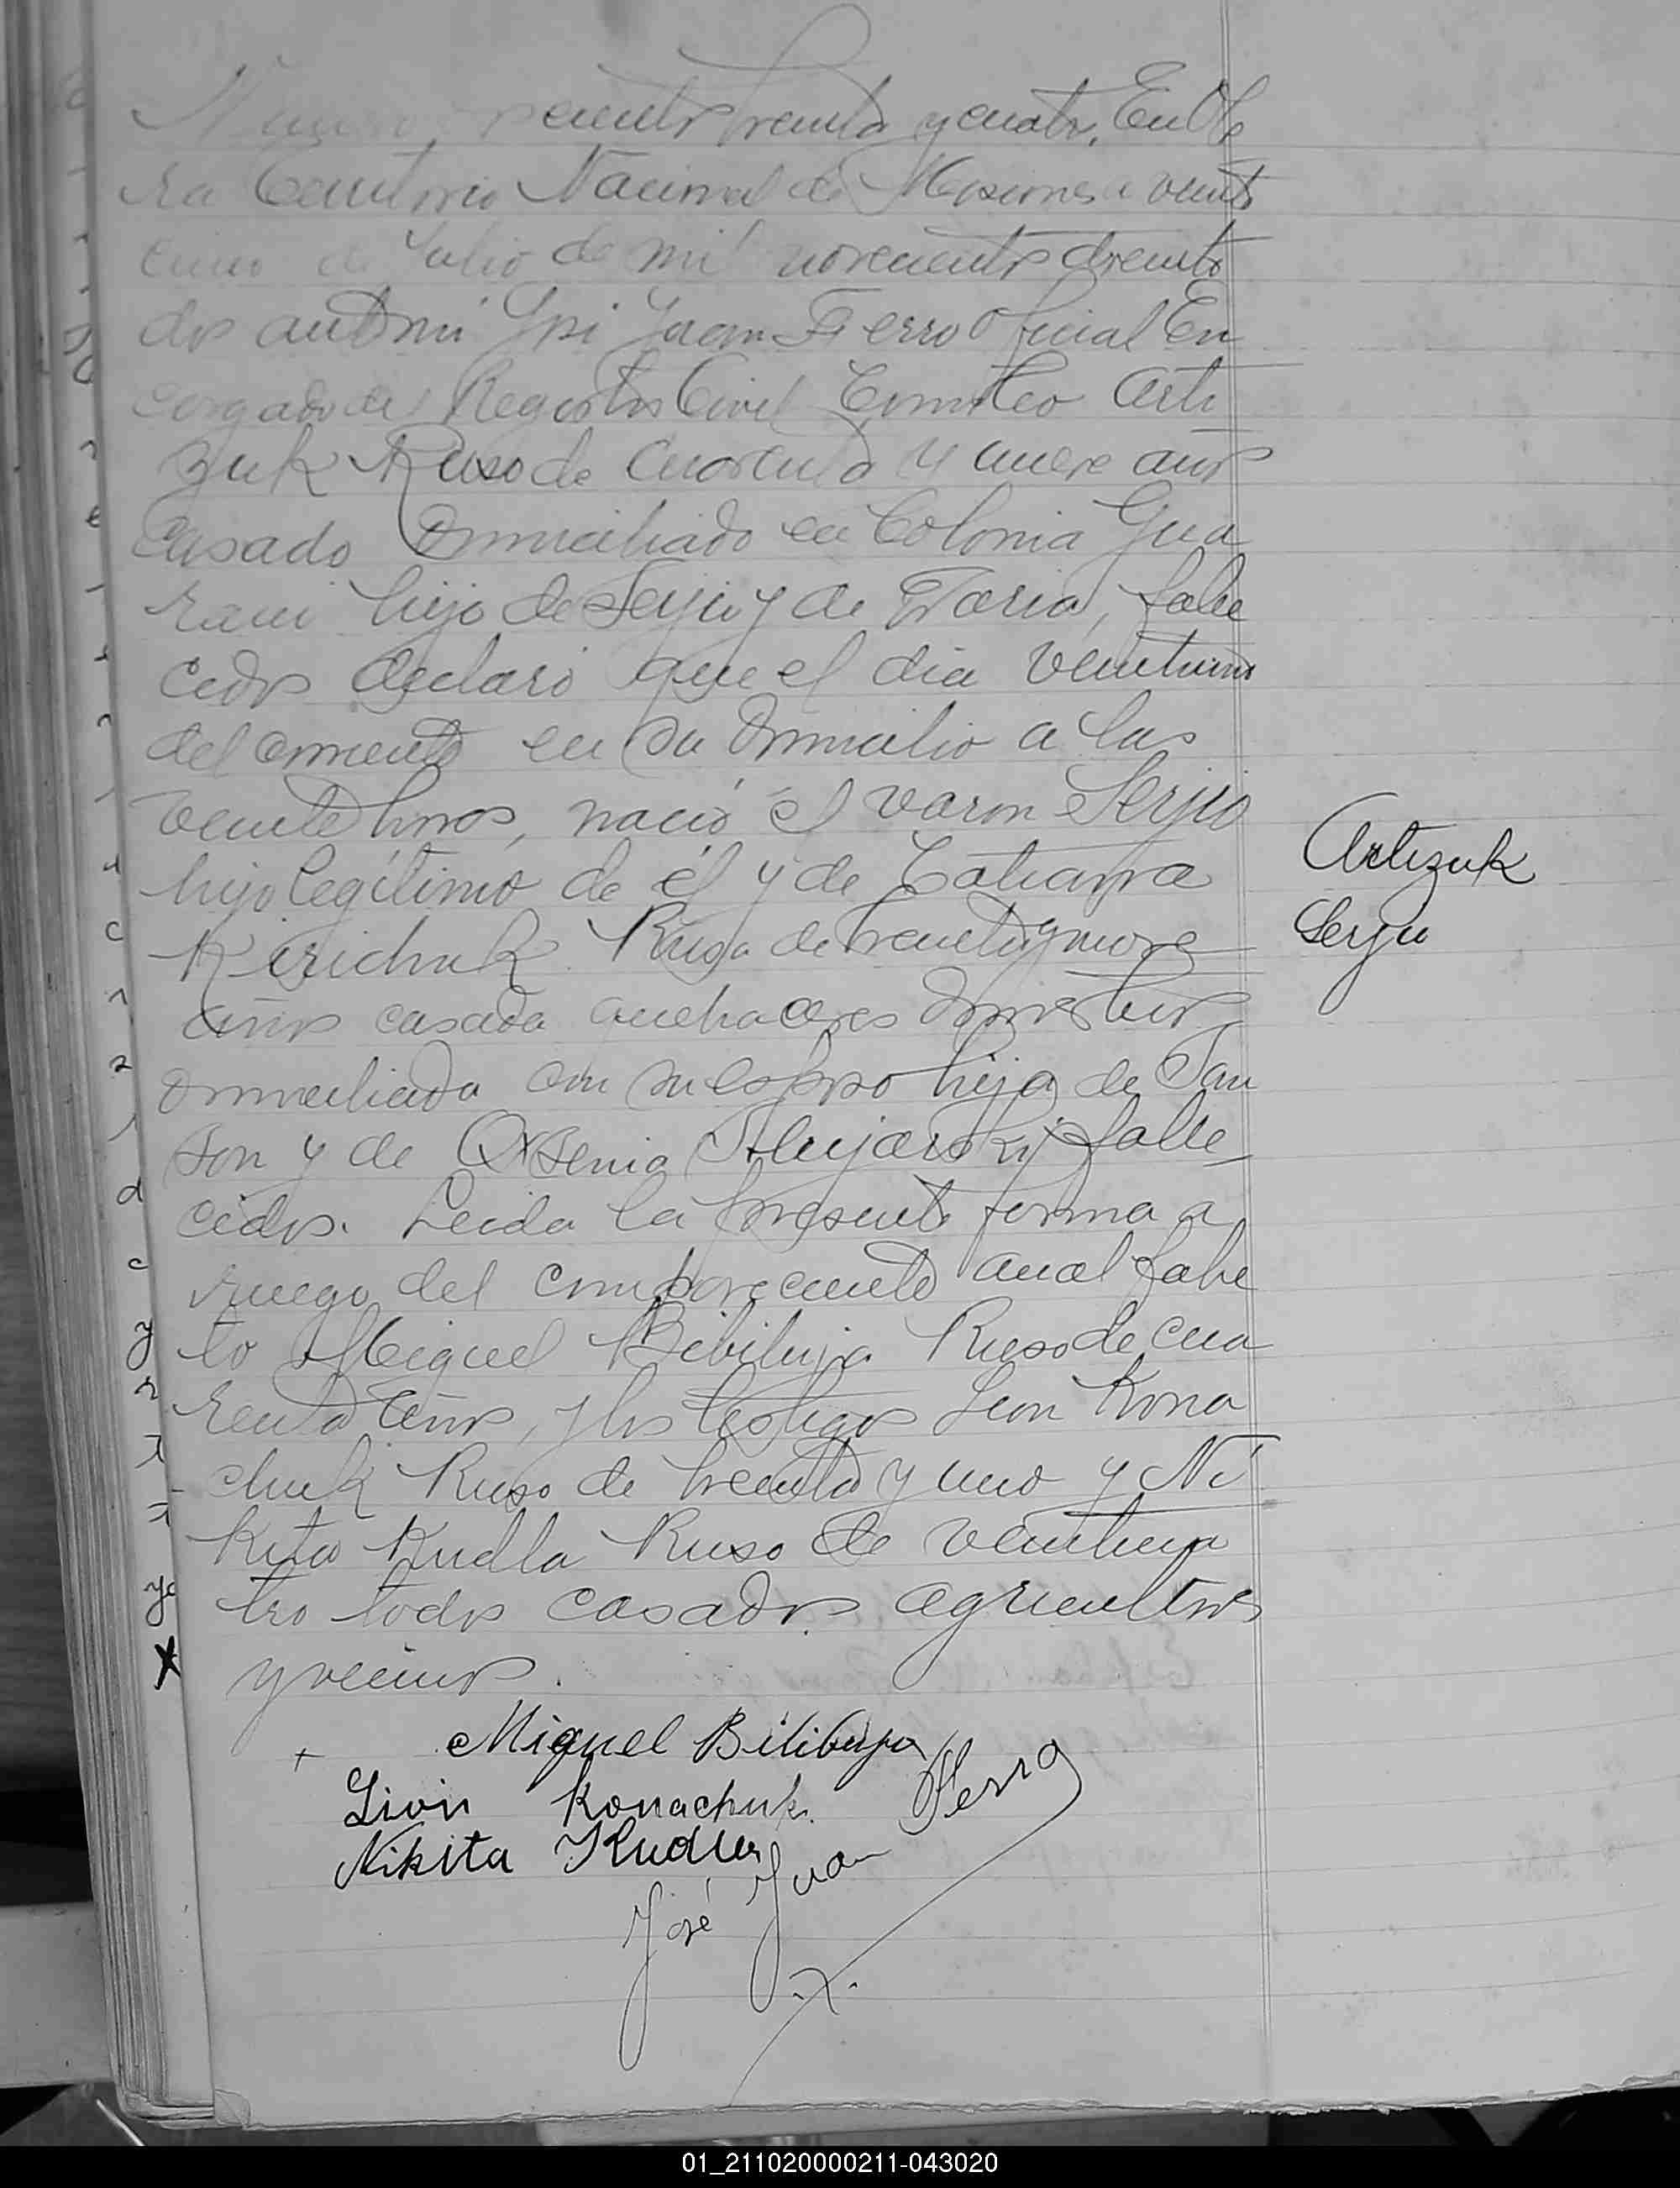 Numero trecientos treinta y cuatro. En Obe
ra Territorio Nacional de Misiones a veinti
cinco de Julio de mil novecientos treinta
dos ante mi José Juan Fierro Oficial En
cargado del Registro Civil Timoteo Arti
zuk Ruso de cuarenta y nueve años
casado domiciliado en Colonia Gua
rani hijo de Serjio y de Daria, falle
cidos declaró que el dia veintiuno
del corriente en su domicilio a las
veinte horas, nació el varon Serjio
hijo legítimo de él y de Tatiana
Kirichuk Rusa de treinta y nueve
años casada quehaceres domesticos
domiciliada con su esposo hija de San
son y de Oxsenia falle
cidos. Leida la presente firma a
ruego del compareciente analfabe
to Miguel Bibiluja Ruso de cua
renta años, y los testigos Leon Kona
chuk Ruso de treinta y uno y Ni
kita Kudla Ruso de veinticua
tro todos casados agricultores
y vecinos.
Artizuk
Serjio
Miguel Bilibuja
Livin Konachuk.
Nikita Kudla
José Juan Fierro
01_211020000211-043020